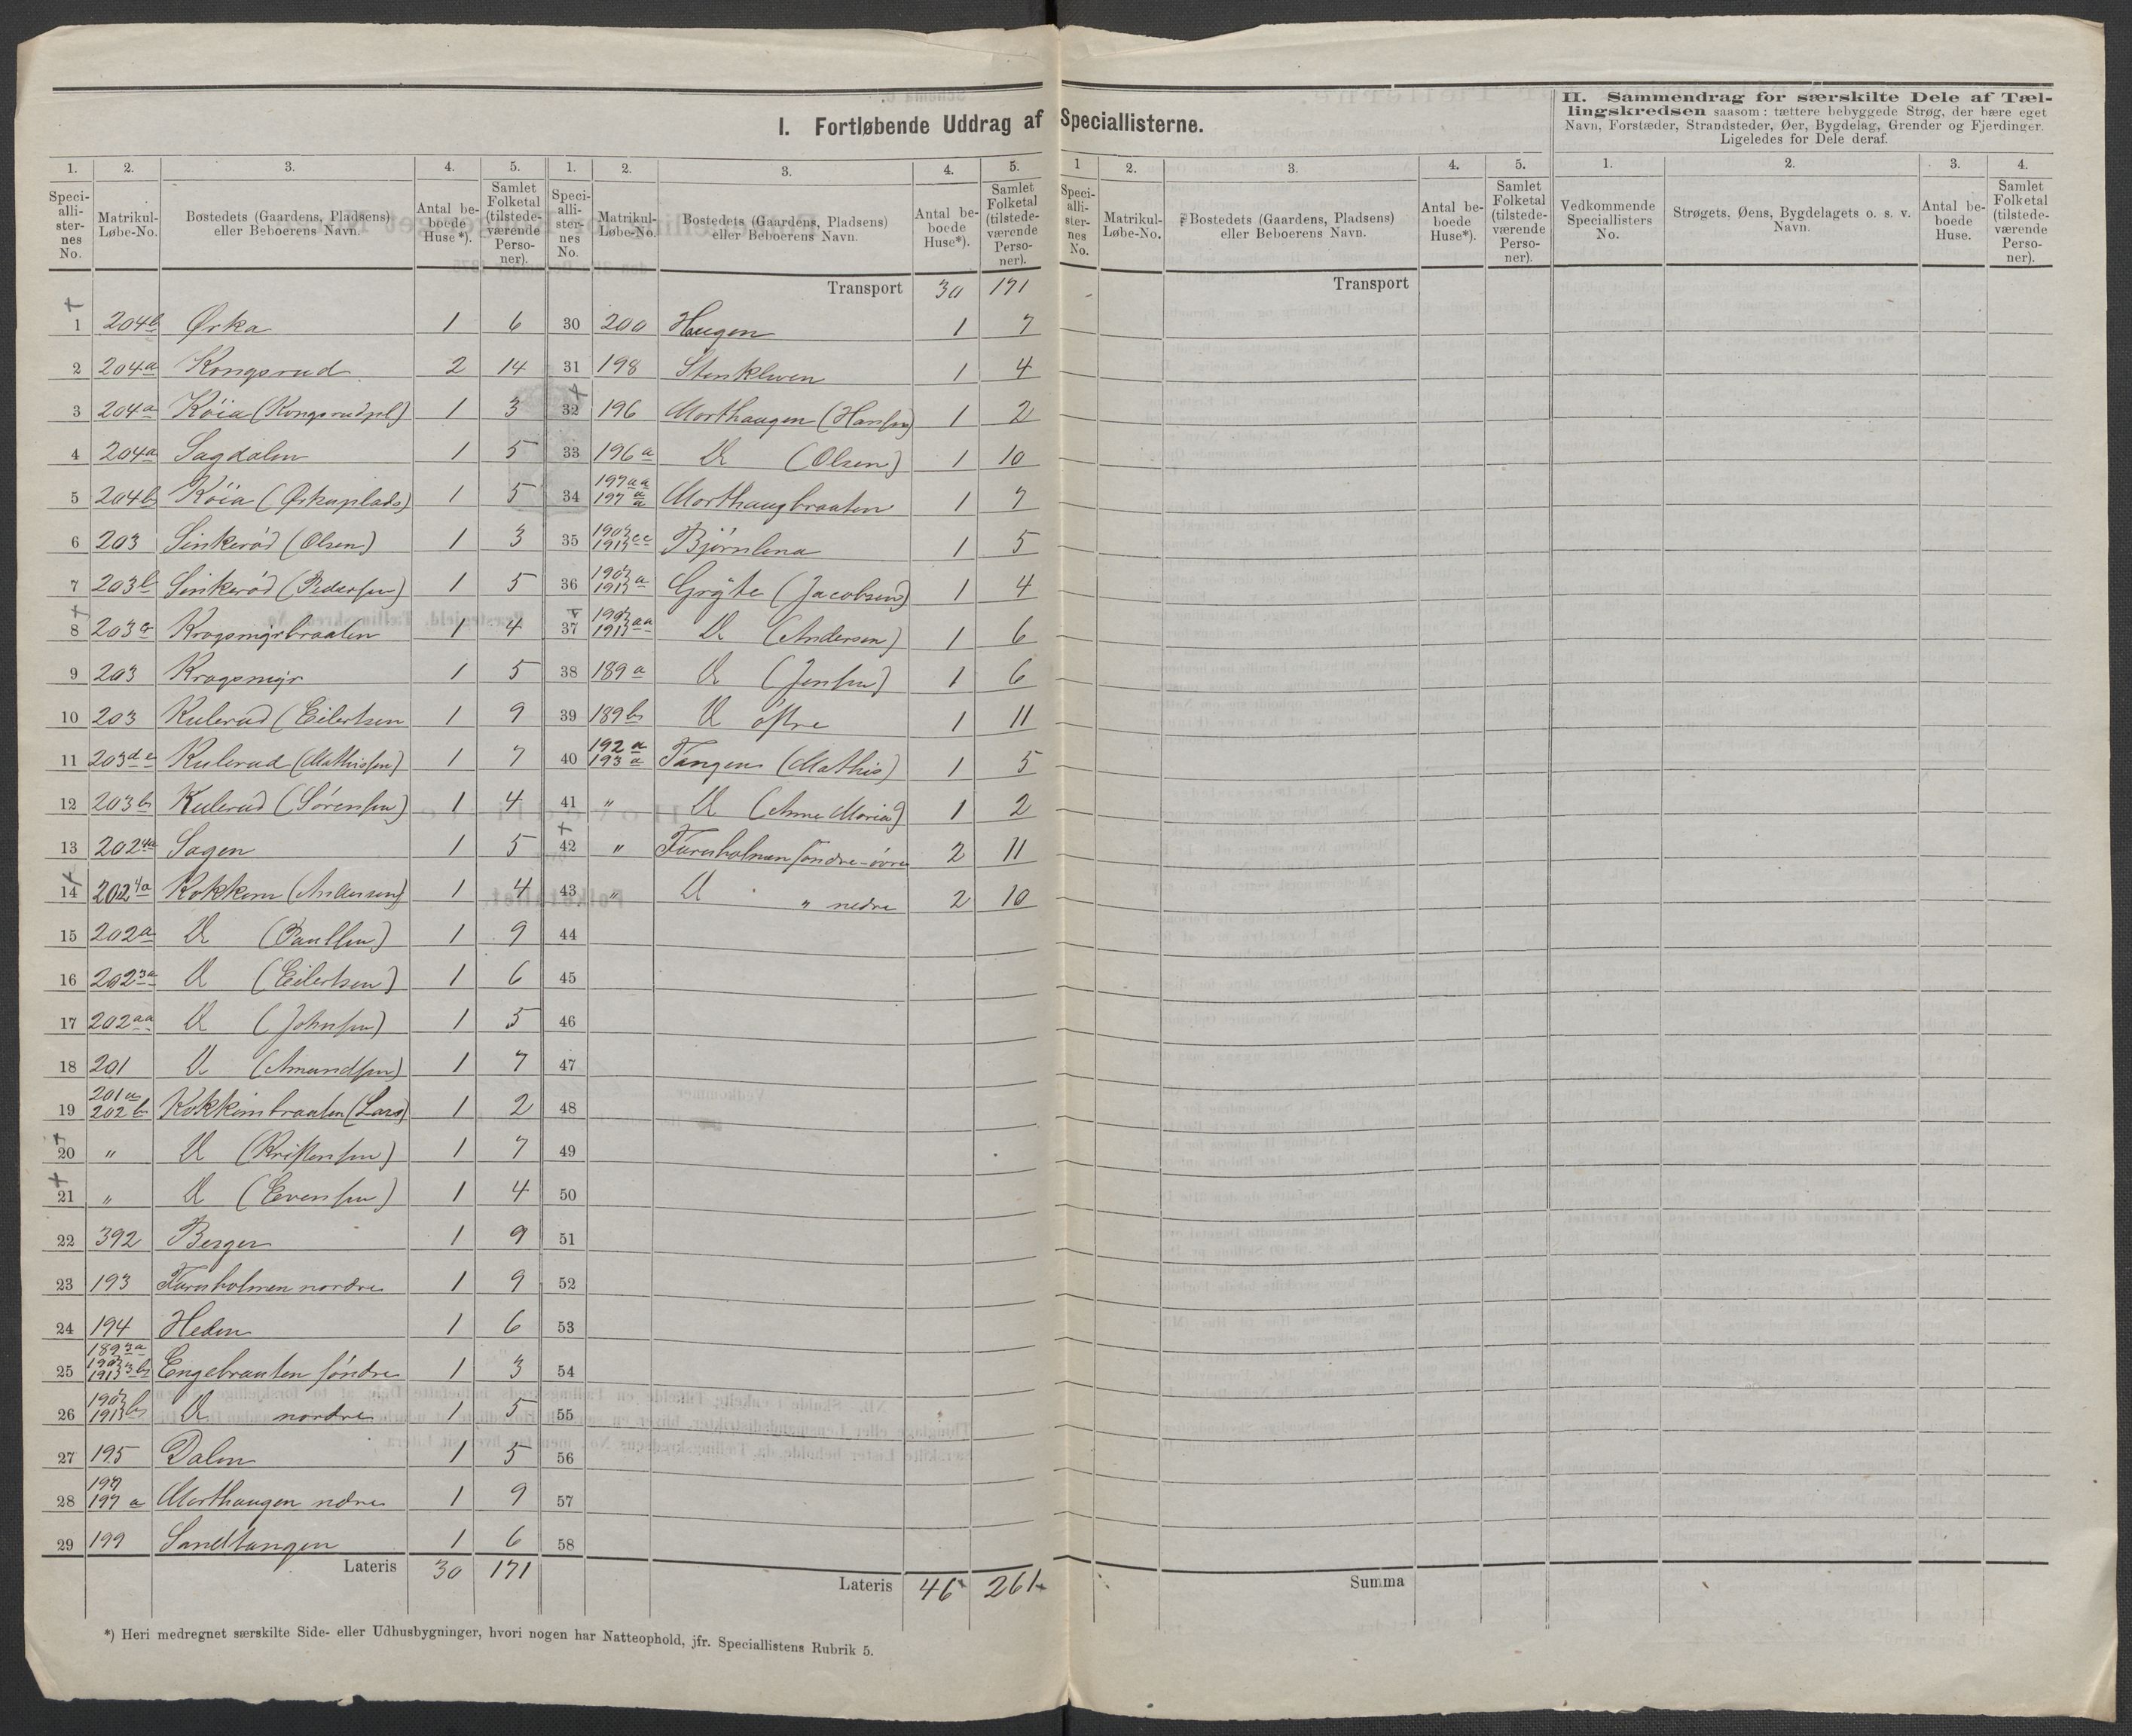 I. Fortløbende Uddrag af Speciallisterne.
II. Sammendrag for særskilte Dele af Tællingskredsen saasom: tættere bebyggede Strøg, der bære eget
Navn, Forstæder, Strandsteder, Øer, Bygdelag, Grender og Fjerdinger.
Ligeledes for Dele deraf.
1. 2. 3. 4. 5. 1. 2. 3. 4. 5. 1 2. 3. 4. 5. 1. 2. 3. 4.
Speciallisternes No. Matrikul-Løbe-No. Bostedets (Gaardens, Pladsens) eller Beboerens Navn. Antal beboede Huse*). Samlet Folketal (tilstedeværende Personer).
Speciallisternes No. Matrikul-Løbe-No. Bostedets (Gaardens, Pladsens) eller Beboerens Navn. Antal beboede Huse*). Samlet Folketal (tilstedeværende Personer).
Speciallisternes No. Matrikul-Løbe-No. Bostedets (Gaardens, Pladsens) eller Beboerens Navn. Antal beboede Huse*). Samlet Folketal (tilstedeværende Personer).
Vedkommende Speciallisters No. Strøgets, Øens, Bygdelagets o. s. v. Navn. Antal beboede Huse. Samlet Folketal (tilstedeværende Personer).
1 204b Ørka 1 6
2 204a Kongsrud 2 14
3 204a Köia (Kongsrudpl) 1 3
4 204a Sagdalen 1 5
5 204b Köia (Ørkaplads) 1 5
6 203 Sinkeröd (Olsen) 1 3
7 203b Sinkeröd (Pedersen) 1 5
8 203 Krogsmyrbraaten 1 4
9 203 Krogsmyr 1 5
10 203 Kulerud (Eilertsen 1 9
11 203de Kulerud (Mathissen) 1 7
12 203b Kulerud (Sörensen) 1 4
13 202 4a Sagen 1 5
14 202 4a Kokkem (Andersen) 1 4
15 202a Do (Paulsen) 1 9
16 202 3a Do (Eilertsen) 1 6
17 202aa Do (Johnsen) 1 5
18 201 Do (Amundsen) 1 7
19 201a 202b Kokkembraaten (Lars) 1 2
20 " Do (Kristensen) 1 7
21 " Do (Evensen) 1 4
22 392 Berger 1 9
23 193 Furuholmen nordre 1 9
24 194 Heden 1 6
25 Engebraaten söndre 1 3
26 Do nordre 1 5
27 195 Dalen 1 5
28 197 a Morthaugen nedre 1 9
29 199 Sandtangen 1 6
Lateris 30 171
Transport 30 171
30 200 Haugen 1 7
31 198 Stenkleven 1 4
32 196 Morthaugen (Hansen) 1 2
33 196a Do (Olsen) 1 10
34 197aa 197 a Morthaugbraaten 1 7
35 Björnlena 1 5
36 Gryte (Jacobsen) 1 4
37 Do (Andersen) 1 6
38 189a Do (Jensen) 1 6
39 189b Do östre 1 11
40 192a 193a Tangen (Mathis) 1 5
41 " Do (Anne Maria) 1 2
42 " Furuholmen söndre-övre 2 11
43 " Do " nedre 2 10
44
45
46
47
48
49
50
51
52
53
54
55
56
57
58
Lateris 46 261
Transport
Summa
*) Heri medregnet særskilte Side- eller Udhusbygninger, hvori nogen har Natteophold, jfr. Speciallistens Rubrik 5.